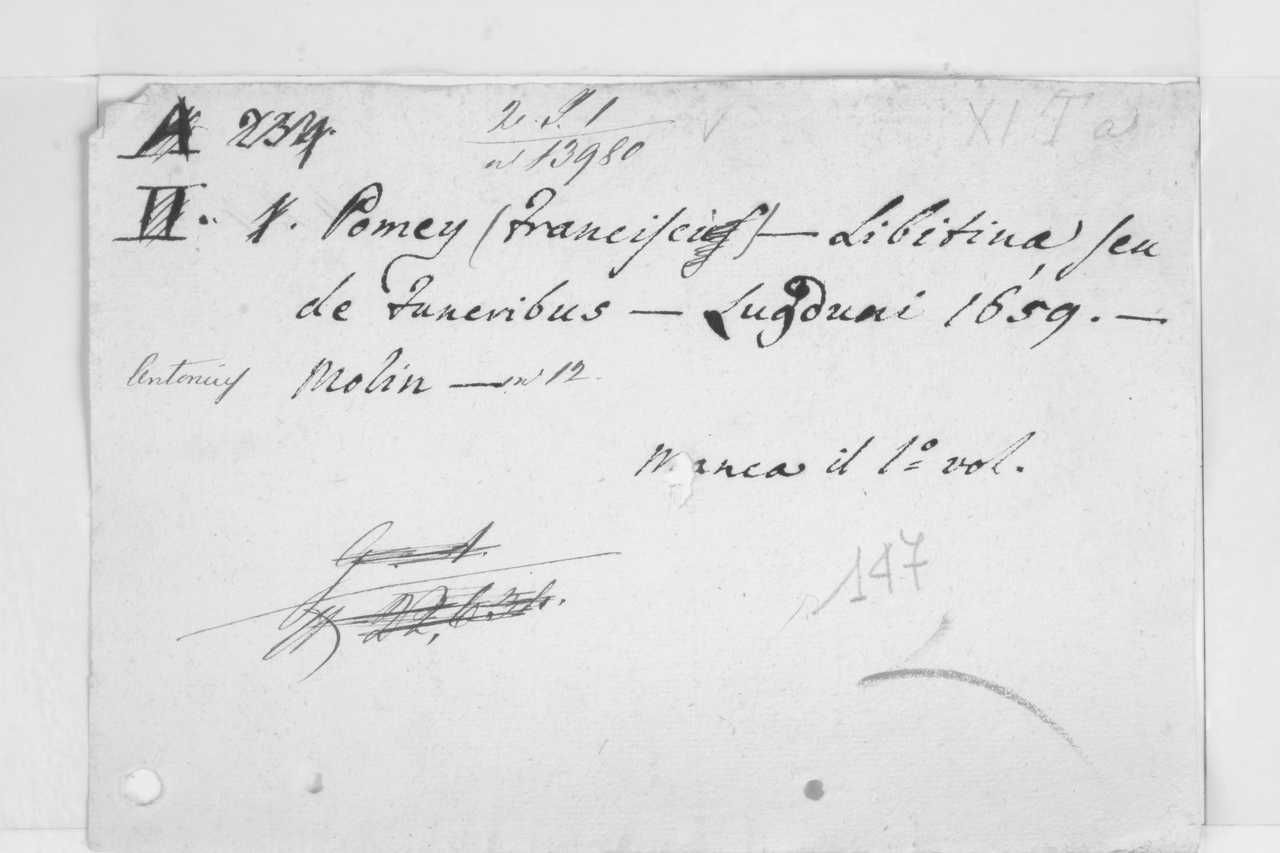 A 234.
2. J. 1
n 13980
XI T a
VI. 1. Pomey (Francisci) — Libitina, seu
de Funeribus — Lugduni 1659. —
Antonius Molin — in 12.
Manca il 1º vol.
22, b.
147